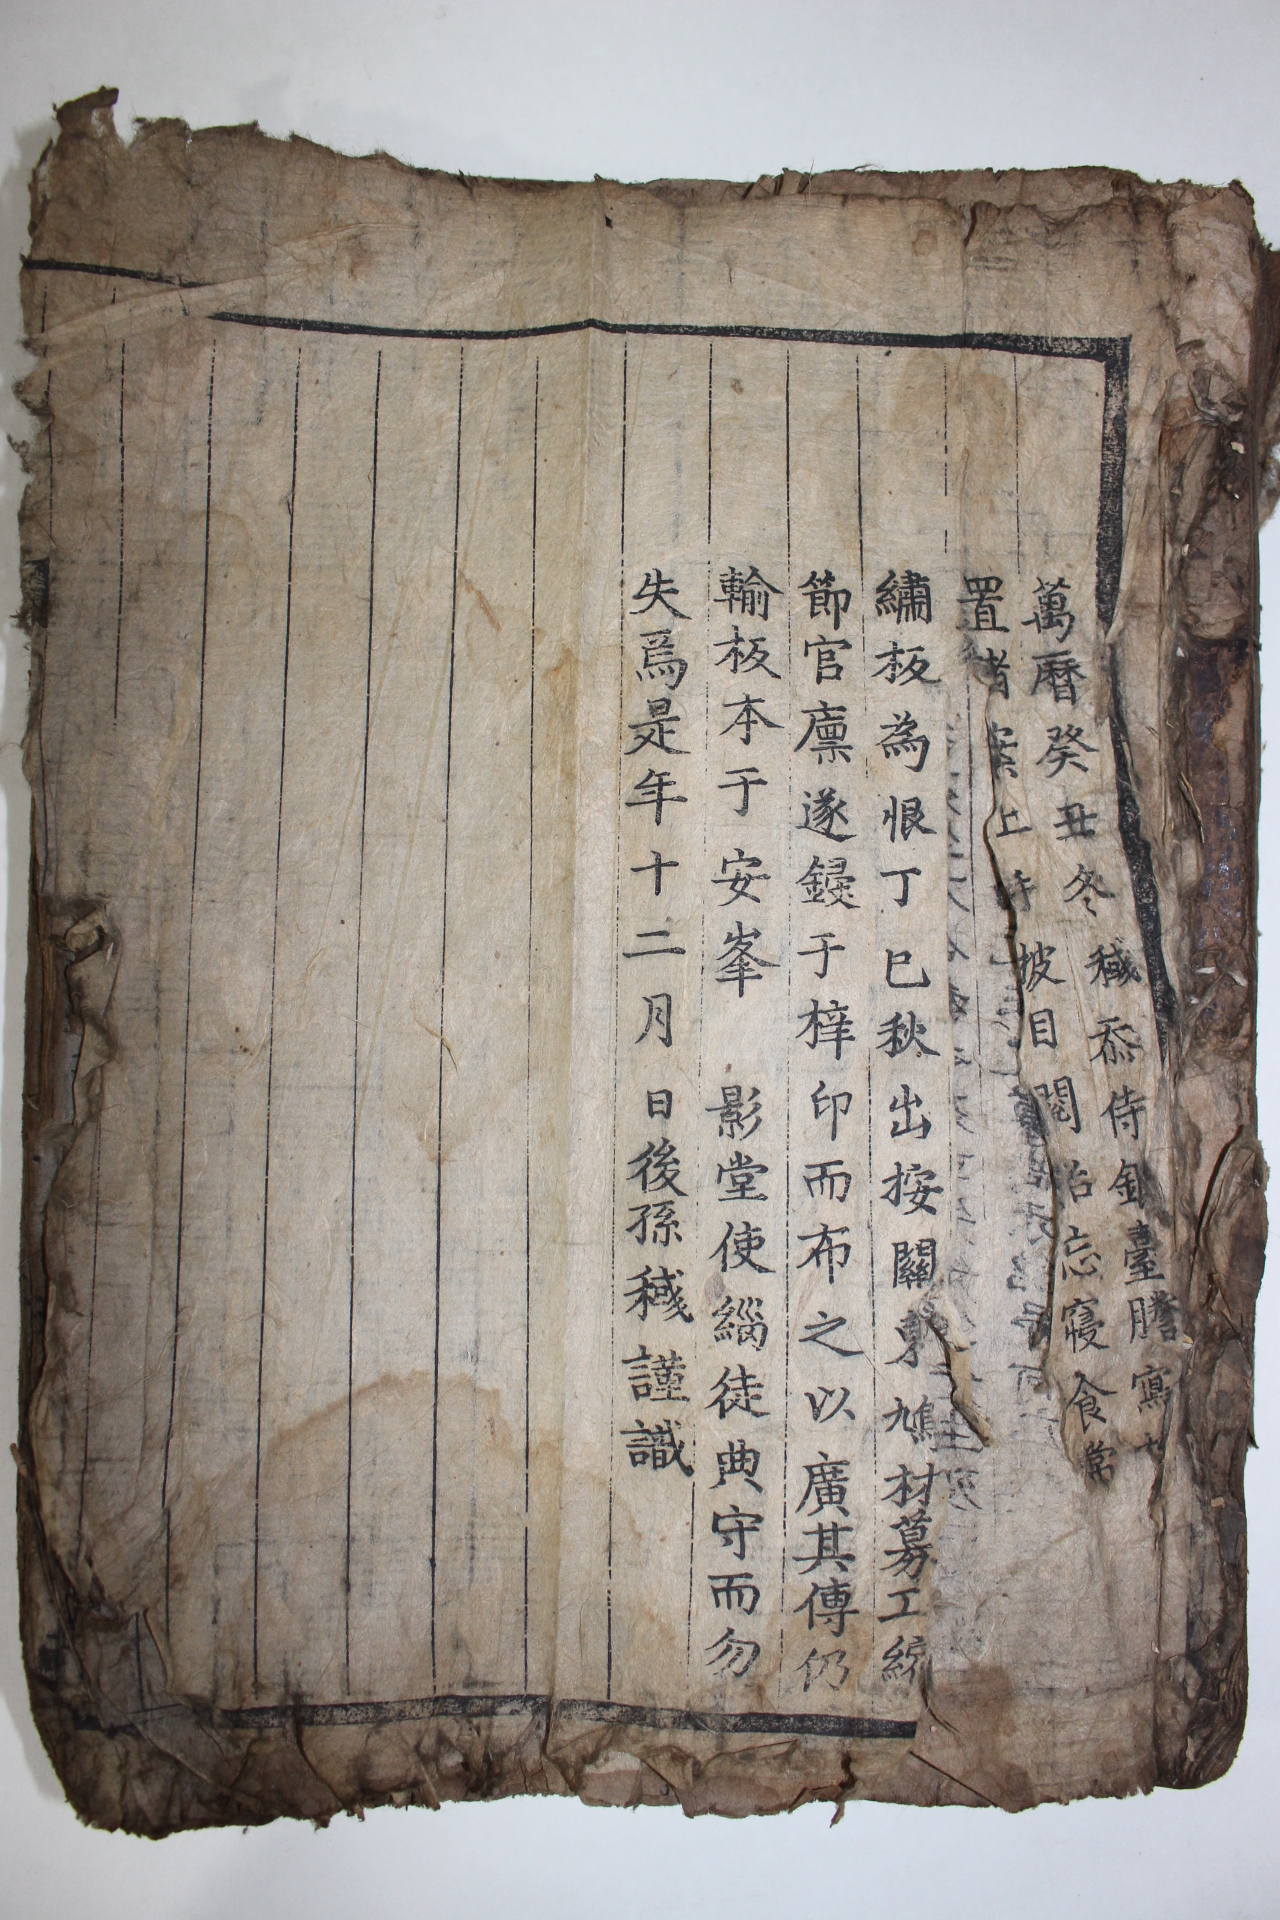 萬曆癸丑冬穢忝侍銀臺謄寫
置諸案上時披目閱殆忘寢食常
繡板為恨丁巳秋出按關東鳩材募工
節官廩遂鋟于梓印而布之以廣其傳仍
輸板本于安峯 影堂使緇徒典守而勿
失焉是年十二月日後孫穢謹識